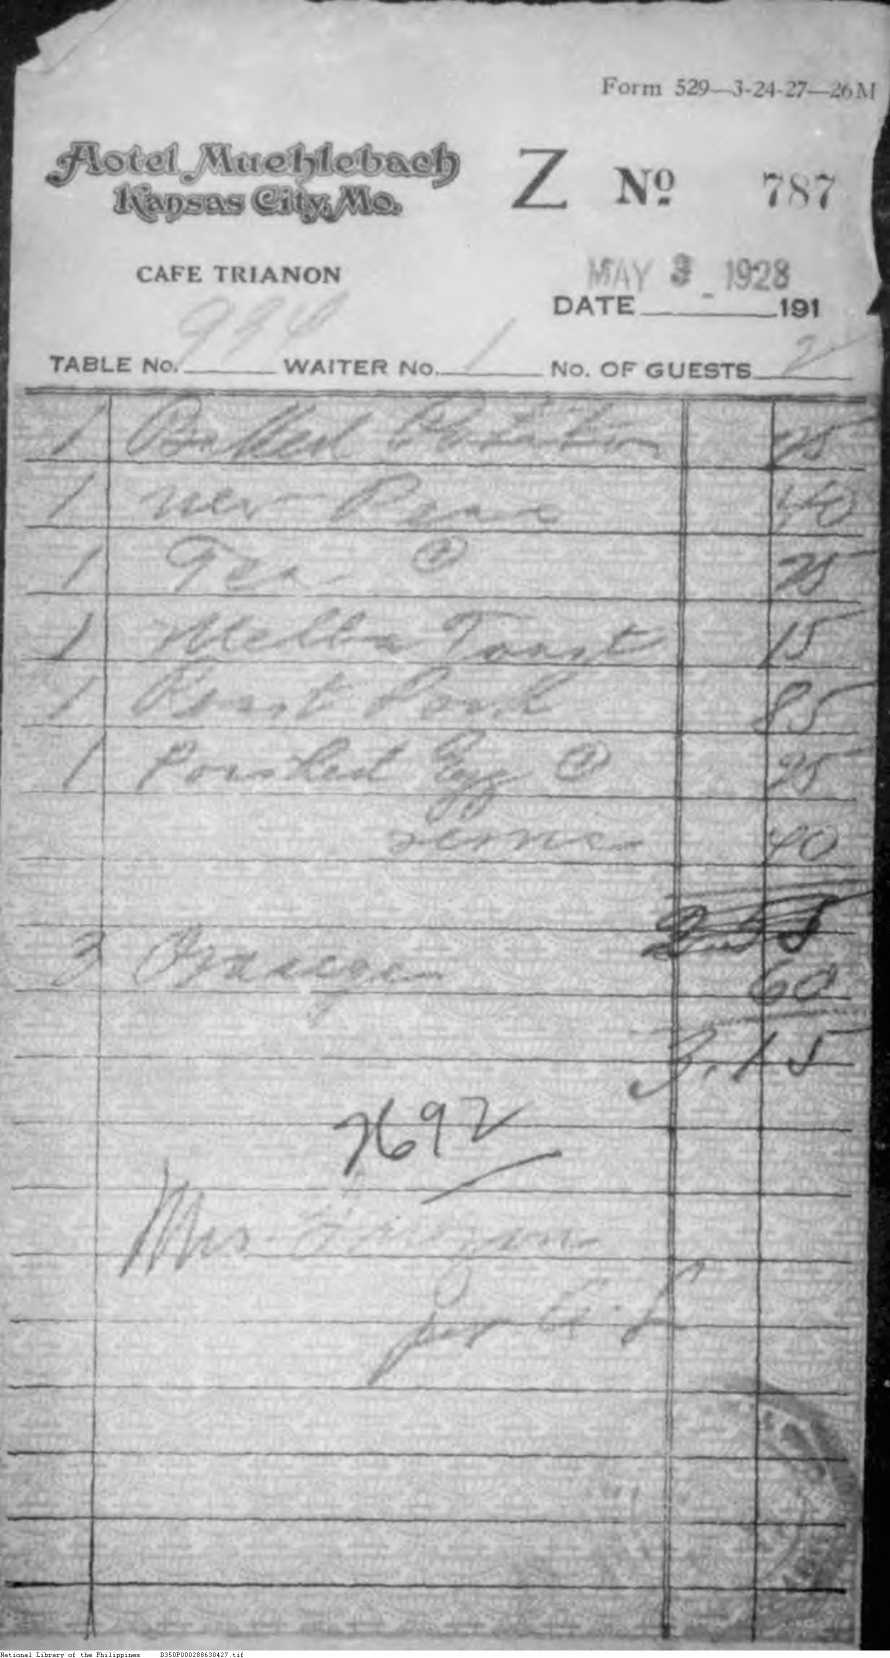 Form 529—3-24-27—26M
Hotel Muehlebach
Kansas City, Mo.
Z No. 787
CAFE TRIANON
MAY 3 - 1928
DATE 191
TABLE No. 994 WAITER No. 1 No. OF GUESTS 2
1 Baked Potato 25
1 New Peas 40
1 Tea 25
1 Melba Toast 15
1 Roast Pork 85
1 Poached Egg 25
40
2.55
3 Oranges 60
3.15
2692
Mrs
per
National Library of the Philippines D350P000288630427.tif